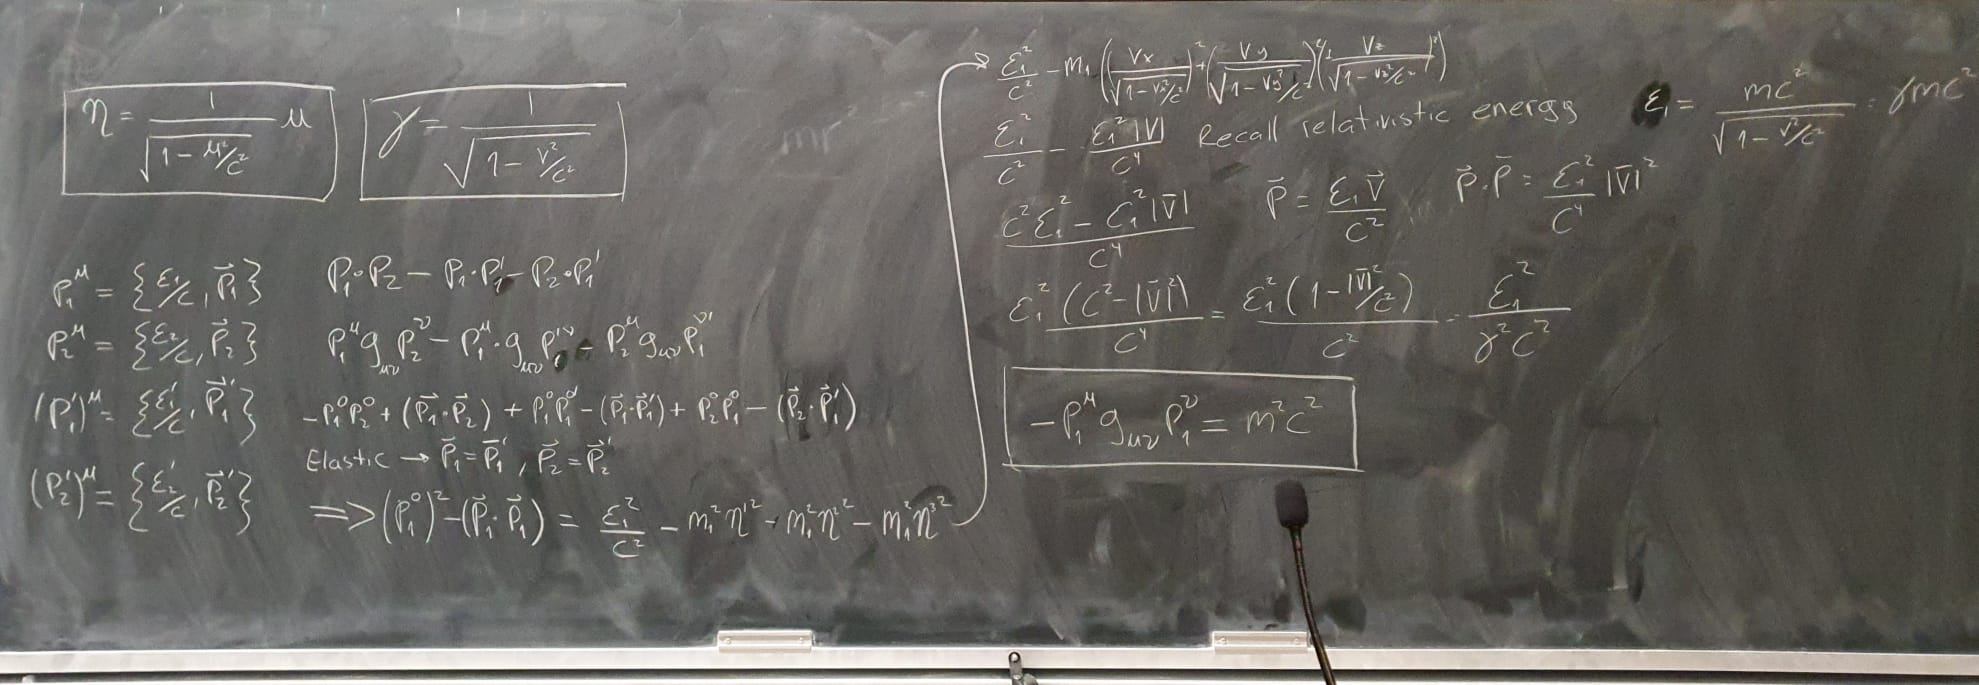 η = 1/√(1 - μ²/c²) μ
γ = 1/√(1 - v²/c²)
P₁^μ = {ε₁/c, P⃗₁}
P₂^μ = {ε₂/c, P⃗₂}
(P₁')^μ = {ε₁'/c, P⃗₁'}
(P₂')^μ = {ε₂'/c, P⃗₂'}
P₁·P₂ - P₁·P₁' - P₂·P₁'
P₁^μ g_μν P₂^ν - P₁^μ · g_μν P₁'^ν - P₂^μ g_μν P₁^ν'
-P₁⁰P₂⁰ + (P⃗₁·P⃗₂) + P₁⁰P₁⁰' - (P⃗₁·P⃗₁') + P₂⁰P₁⁰' - (P⃗₂·P⃗₁')
Elastic → P⃗₁ = P⃗₁', P⃗₂ = P⃗₂'
⟹ (P₁⁰)² - (P⃗₁·P⃗₁) = ε₁²/c² - m₁²η¹² - m₁²η²² - m₁²η³²
ε₁²/c² - m₁((Vx/√(1 - Vx²/c²))² + (Vy/√(1 - Vy²/c²))² (Vz/√(1 - Vz²/c²))²)
ε₁²/c² - ε₁²|V|/c⁴ Recall relativistic energy ε₁ = mc²/√(1 - v²/c²) = γmc²
(c²ε₁² - ε₁²|V⃗|)/c⁴ P⃗ = ε₁V⃗/c² P⃗·P⃗ = ε₁²/c⁴ |V⃗|²
ε₁²(c² - |V⃗|²)/c⁴ = ε₁²(1 - |V⃗|²/c²)/c² = ε₁²/γ²c²
-P₁^μ g_μν P₁^ν = m²c²